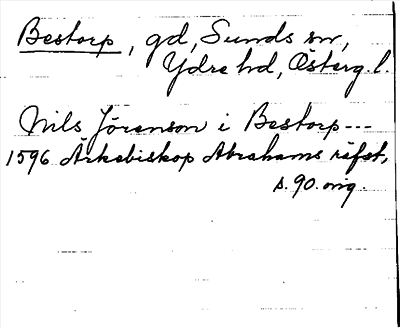 Bestorp, gd, Sunds sn,
Ydre hd, Österg. l.
Nils Jöranson i Bestorp ---
1596 Ärkebiskop Abrahams räfst,
s. 90. orig.